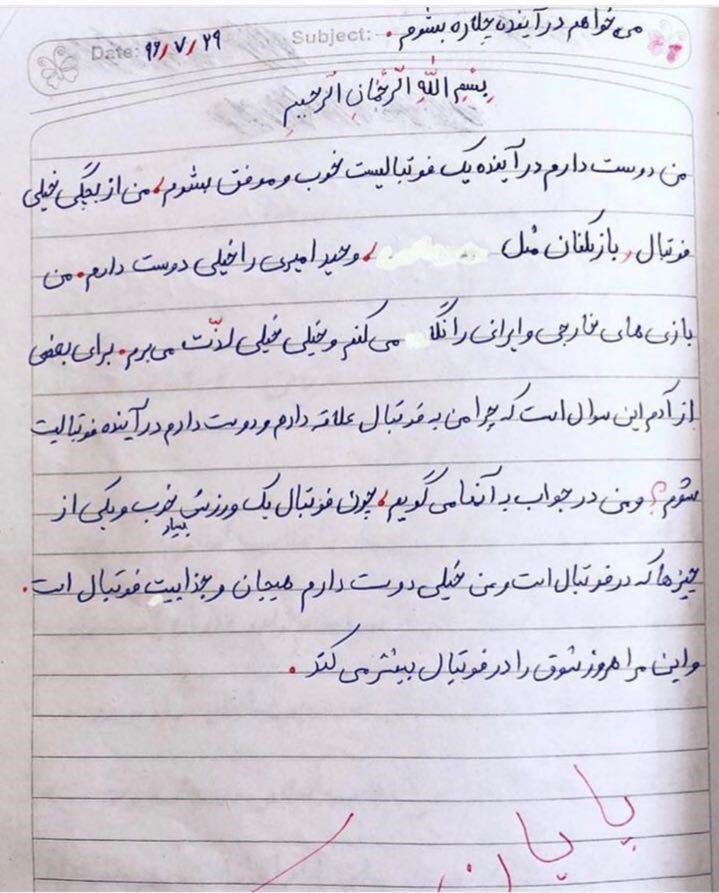 Subject: می‌خواهم در آینده چکاره بشوم.
Date: ۹۶/۷/۲۹
بِسْمِ اللّٰهِ الرَّحْمٰانِ الرَّحیمِ
من دوست دارم در آینده یک فوتبالیست خوب و موفق بشوم، من از بچگی خیلی
فوتبال و بازیکنان مثل ، وحید امیری را خیلی دوست دارم. من
بازی های خارجی و ایرانی را نگاه می کنم و خیلی خیلی لذّت می برم. برای بعضی
از آدم این سوال است که چرا من به فوتبال علاقه دارم و دوست دارم در آینده فوتبالیت
بشوم؟ و من در جواب به آنها می گویم، چون فوتبال یک ورزش بسیار خوب و یکی از
چیزها که در فوتبال است و من خیلی دوست دارم هیجان و جذابیت فوتبال است.
و این مرا هروز شوق را در فوتبال بیشتر می کند.
پایان